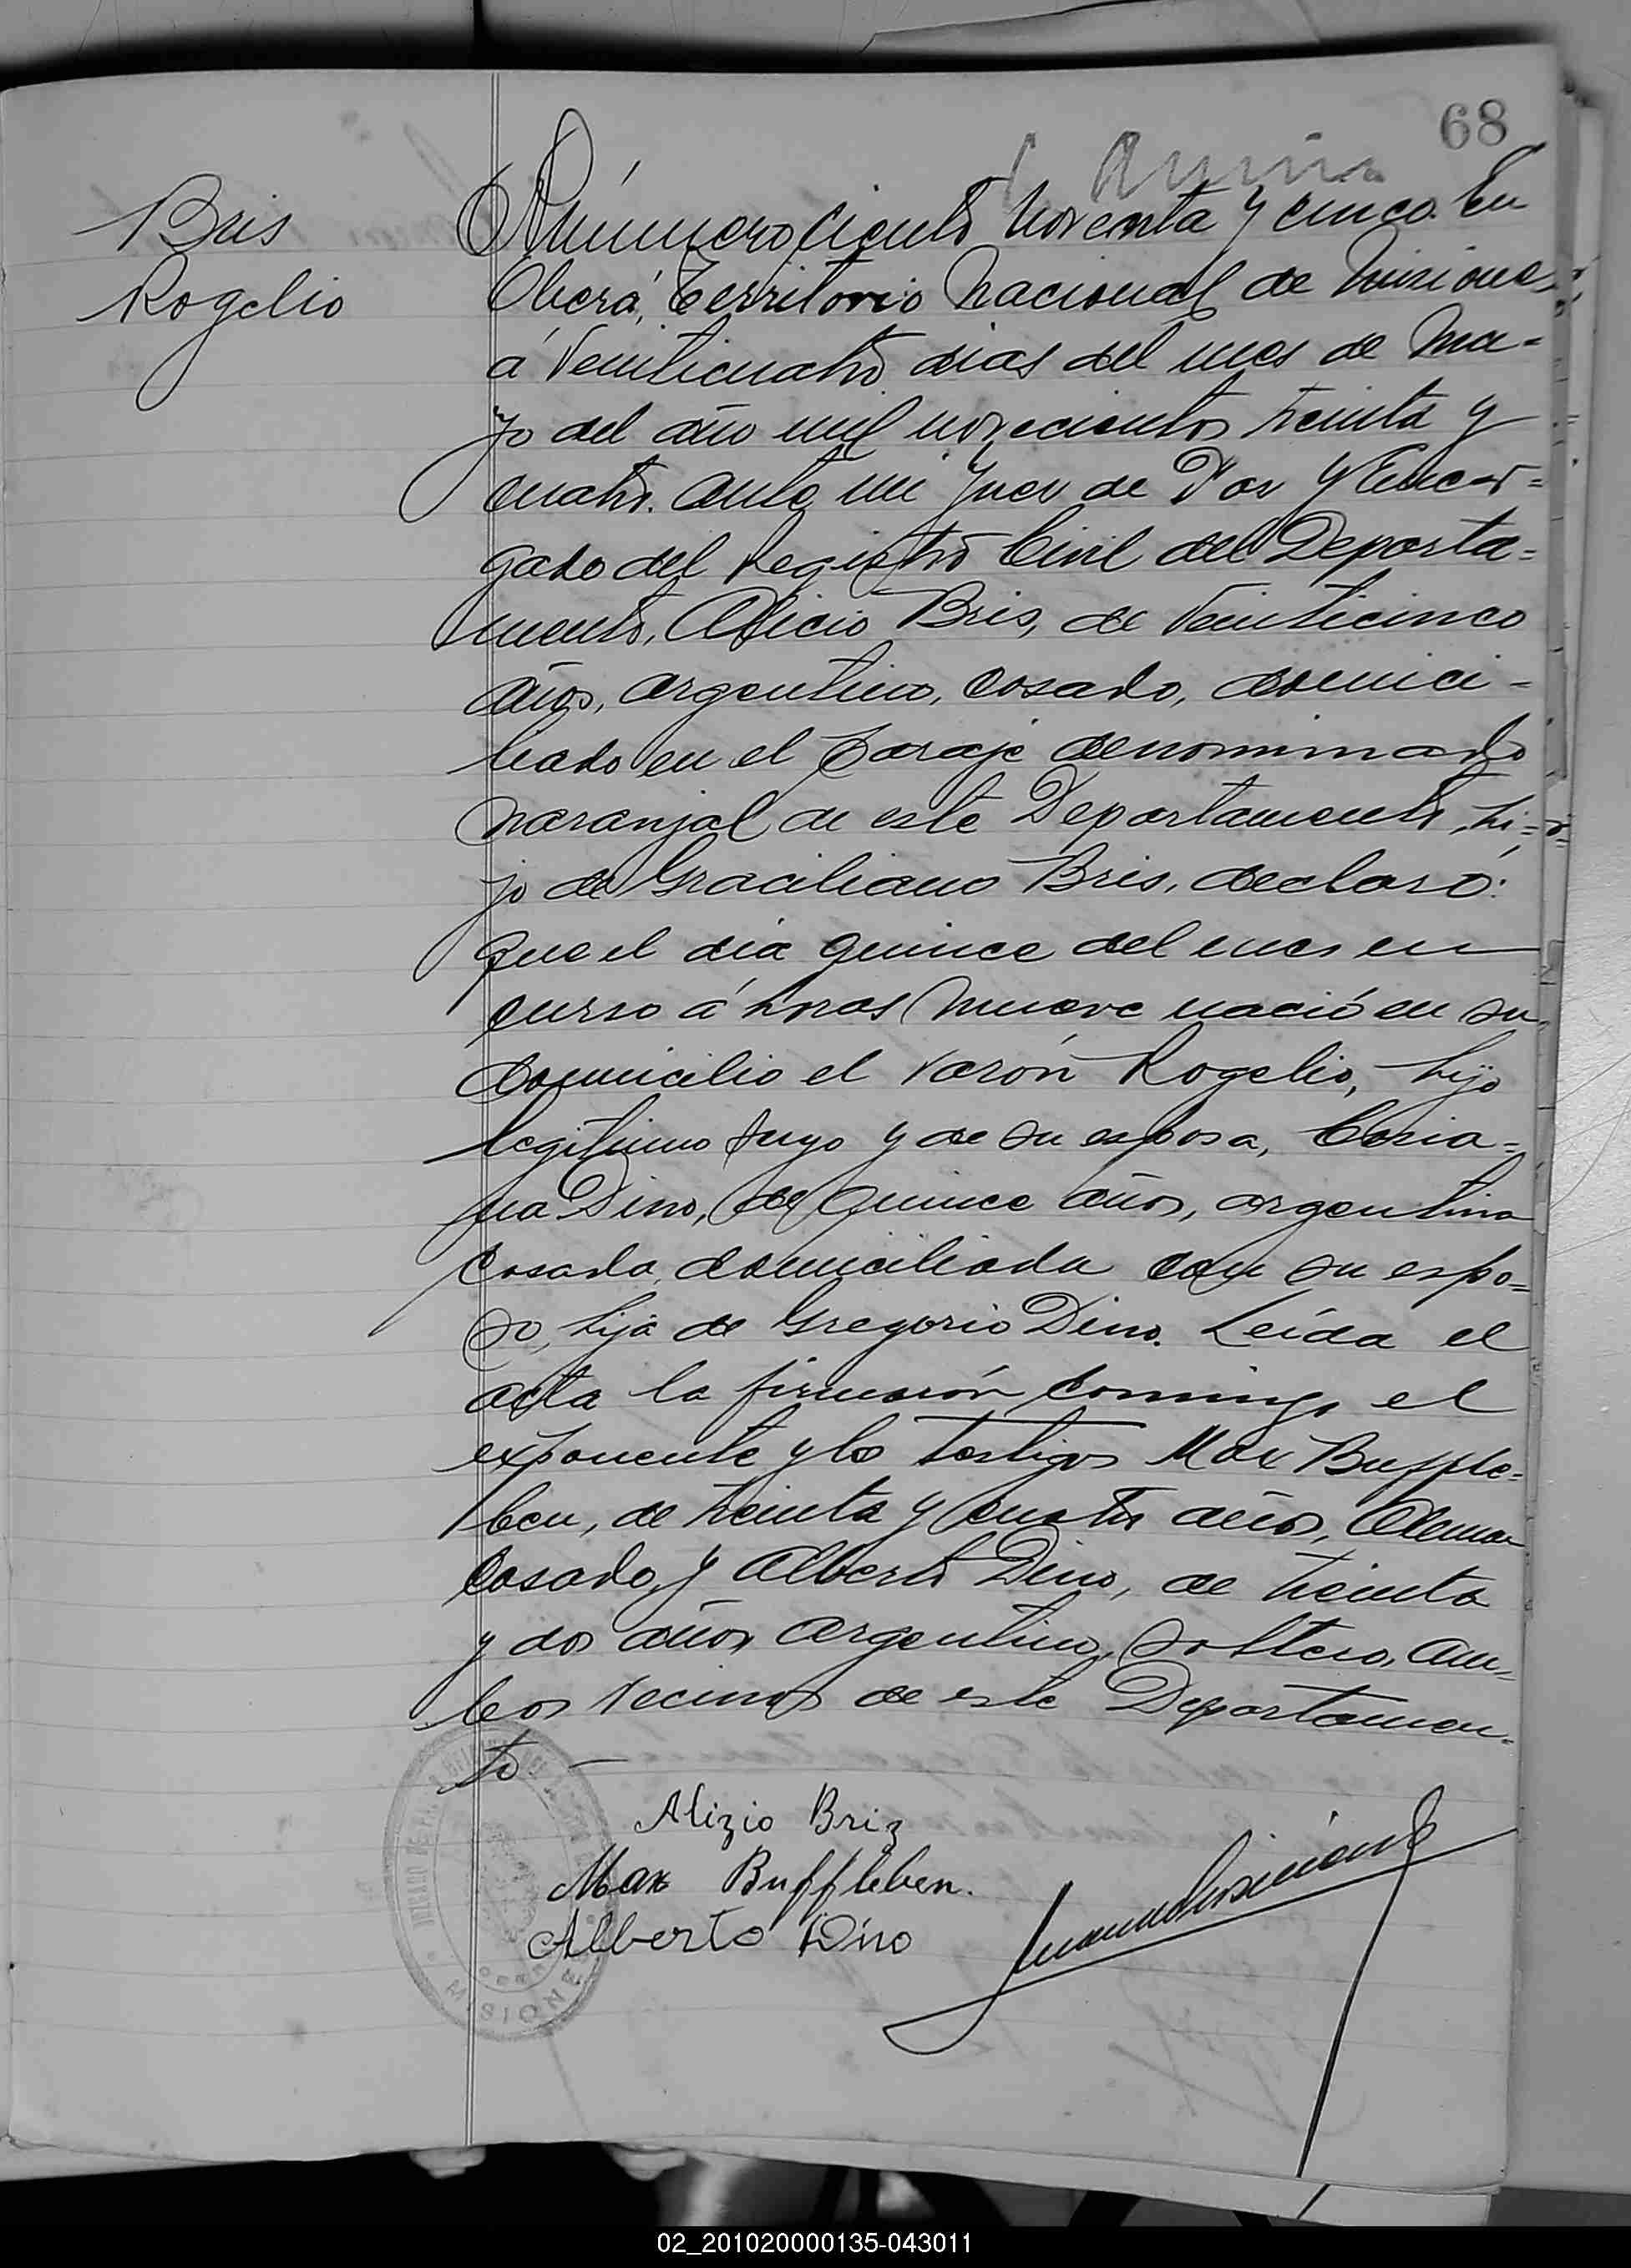 68
Bris
Rogelio
Número ciento noventa y cinco. En
Oberá, Territorio Nacional de Misiones
á veinticuatro dias del mes de Ma=
yo del año mil novecientos treinta y
cuatro. Ante mi Juez de Paz y Encar=
gado del Registro Civil del Departa=
mento, Alicio Bris, de veinticinco
años, argentino, casado, domici=
liado en el paraje denominado
naranjal de este Departamento, hi=
jo de Graciliano Bris, declaró:
que el día quince del mes en
curso á horas nueve nació en su
domicilio el varón Rogelio, hijo
legitimo suyo y de su esposa,
Dino, de quince años, argentina
casada, domiciliada con su espo=
so, hija de Gregorio Dino. Leída el
acta la firmarón conmigo, el
exponente y los testigos Max Buffle=
ben, de treinta y cuatro años, Aleman
casado, y Alberto Dino, de treinta
y dos años argentino, soltero, am=
bos vecinos de este Departamen=
to. —
Alizio Briz
Max Buffleben.
Alberto Dino
MISIONES
02_201020000135-043011